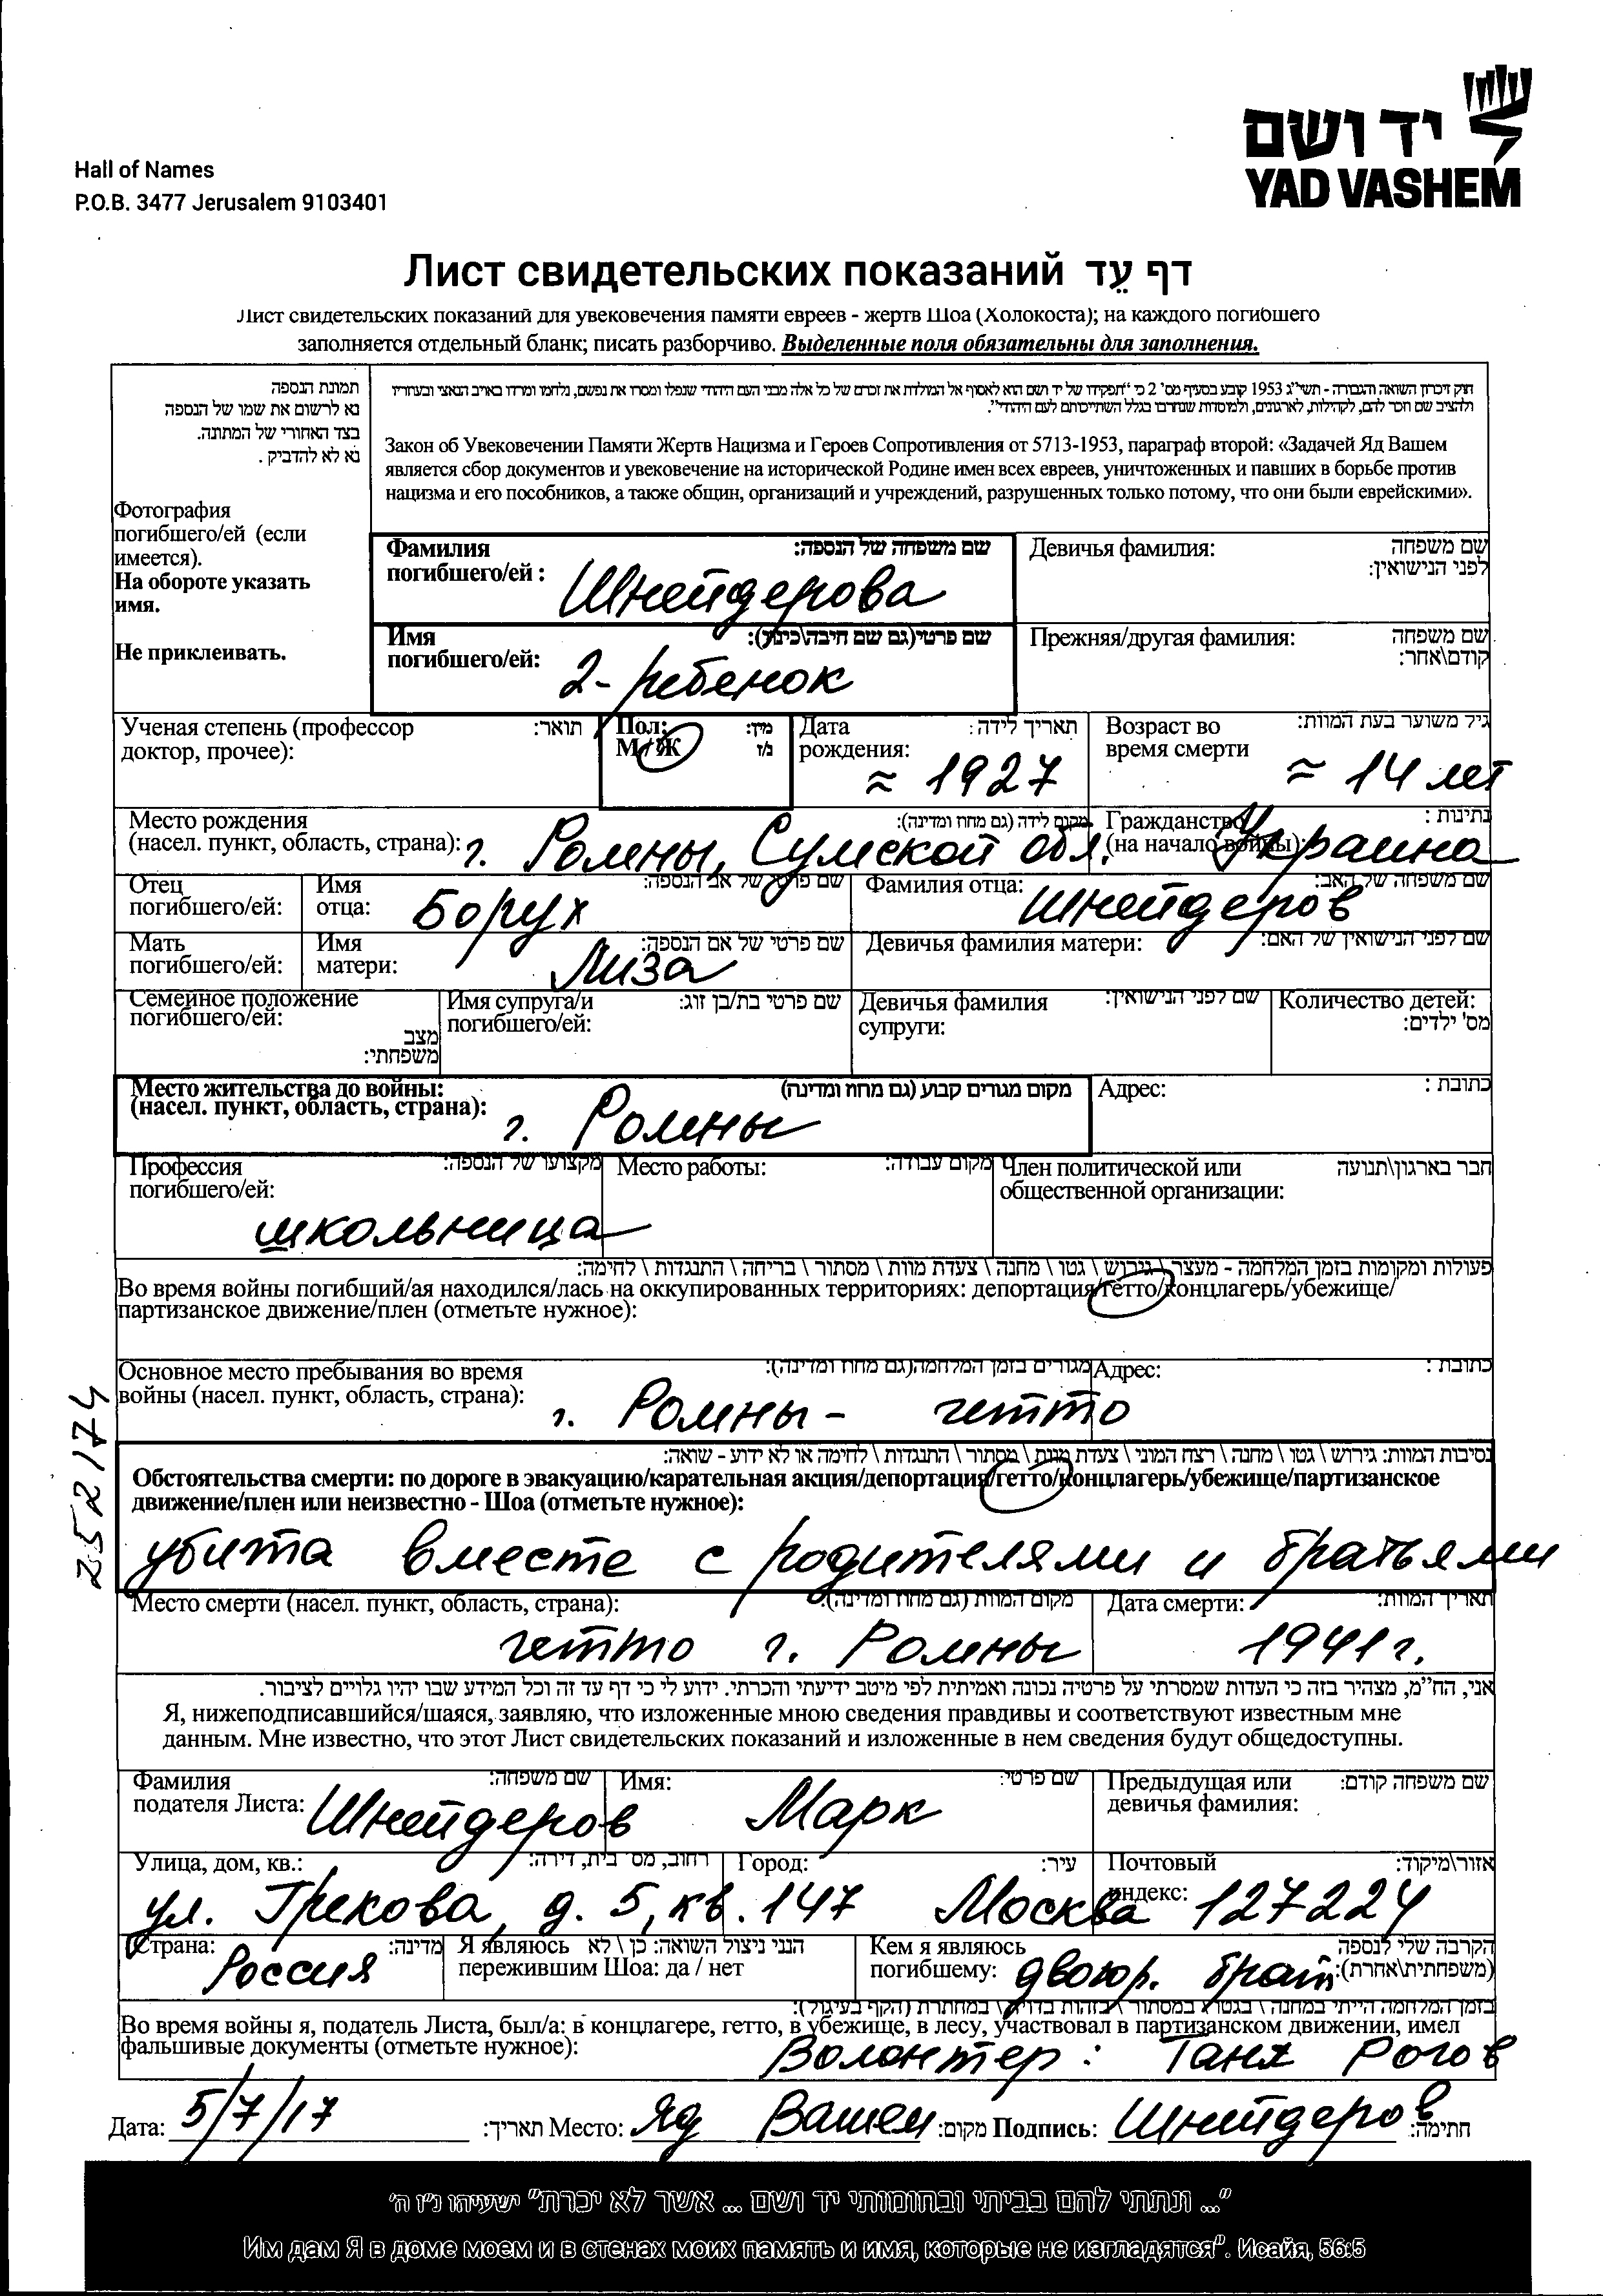 יד ושם
YAD VASHEM
Hall of Names
P.O.B. 3477 Jerusalem 9103401
Лист свидетельских показаний דף עֵד
Лист свидетельских показаний для увековечения памяти евреев - жертв Шоа (Холокоста); на каждого погибшего
заполняется отдельный бланк; писать разборчиво. Выделенные поля обязательны для заполнения.
תמונת הנספה
נא לרשום את שמו של הנספה
בצד האחורי של התמונה.
נא לא להדביק .
Фотография
погибшего/ей (если
имеется).
На обороте указать
имя.
Не приклеивать.
חוק זיכרון השואה והגבורה - תשי"ג 1953 קובע בסעיף מס' 2 כי "תפקידו של יד ושם הוא לאסוף אל המולדת את זכרם של כל אלה מבני העם היהודי שנפלו ומסרו את נפשם, נלחמו ומרדו באויב הנאצי ובעוזריו
ולהציב שם וזכר להם, לקהילות, לארגונים, ולמוסדות שנחרבו בגלל השתייכותם לעם היהודי".
Закон об Увековечении Памяти Жертв Нацизма и Героев Сопротивления от 5713-1953, параграф второй: «Задачей Яд Вашем
является сбор документов и увековечение на исторической Родине имен всех евреев, уничтоженных и павших в борьбе против
нацизма и его пособников, а также общин, организаций и учреждений, разрушенных только потому, что они были еврейскими».
Фамилия погибшего/ей : שם משפחה של הנספה:
Шнейдерова
Девичья фамилия: שם משפחה לפני הנישואין:
Имя погибшего/ей: שם פרטי(גם שם חיבה\כינוי):
2- ребенок
Прежняя/другая фамилия: שם משפחה קודם\אחר:
Ученая степень (профессор доктор, прочее): תואר:
Пол: מין:
М / Ж ז/נ
Дата рождения: תאריך לידה:
≈ 1927
Возраст во время смерти גיל משוער בעת המוות:
≈ 14 лет
Место рождения (насел. пункт, область, страна): מקום לידה (גם מחוז ומדינה):
г. Ромны, Сумской обл.
Гражданство (на начало войны): נתינות :
Украина
Отец погибшего/ей: Имя отца: שם פרטי של אב הנספה:
Борух
Фамилия отца: שם משפחה של האב:
Шнейдеров
Мать погибшего/ей: Имя матери: שם פרטי של אם הנספה:
Лиза
Девичья фамилия матери: שם לפני הנישואין של האם:
Семейное положение погибшего/ей: מצב משפחתי:
Имя супруга/и погибшего/ей: שם פרטי בת/בן זוג:
Девичья фамилия супруги: שם לפני הנישואין:
Количество детей: מס' ילדים:
Место жительства до войны: (насел. пункт, область, страна): מקום מגורים קבוע (גם מחוז ומדינה)
г. Ромны
Адрес: כתובת :
Профессия погибшего/ей: מקצועו של הנספה:
школьница
Место работы: מקום עבודה:
Член политической или общественной организации: חבר בארגון\תנועה
פעולות ומקומות בזמן המלחמה - מעצר \ גירוש \ גטו \ מחנה \ צעדת מוות \ מסתור \ בריחה \ התנגדות \ לחימה:
Во время войны погибший/ая находился/лась на оккупированных территориях: депортация/гетто/концлагерь/убежище/
партизанское движение/плен (отметьте нужное):
Основное место пребывания во время войны (насел. пункт, область, страна): מגורים בזמן המלחמה(גם מחוז ומדינה):
г. Ромны - гетто
Адрес: כתובת :
252174
נסיבות המוות: גירוש \ גטו \ מחנה \ רצח המוני \ צעדת מוות \ מסתור \ התנגדות \ לחימה או לא ידוע - שואה:
Обстоятельства смерти: по дороге в эвакуацию/карательная акция/депортация/гетто/концлагерь/убежище/партизанское
движение/плен или неизвестно - Шоа (отметьте нужное):
убита вместе с родителями и братьями
Место смерти (насел. пункт, область, страна): מקום המוות (גם מחוז ומדינה):
гетто г. Ромны
Дата смерти: תאריך המוות:
1941 г.
אני, הח"מ, מצהיר בזה כי העדות שמסרתי על פרטיה נכונה ואמיתית לפי מיטב ידיעתי והכרתי. ידוע לי כי דף עד זה וכל המידע שבו יהיו גלויים לציבור.
Я, нижеподписавшийся/шаяся, заявляю, что изложенные мною сведения правдивы и соответствуют известным мне
данным. Мне известно, что этот Лист свидетельских показаний и изложенные в нем сведения будут общедоступны.
Фамилия подателя Листа: שם משפחה:
Шнейдеров
Имя: שם פרטי:
Марк
Предыдущая или девичья фамилия: שם משפחה קודם:
Улица, дом, кв.: רחוב, מס' בית, דירה:
ул. Грекова, д. 5, кв. 147
Город: עיר:
Москва
Почтовый индекс: אזור\מיקוד:
127224
Страна: מדינה:
Россия
Я являюсь пережившим Шоа: да / нет הנני ניצול השואה: כן \ לא
Кем я являюсь погибшему: הקרבה שלי לנספה (משפחתית\אחרת):
двоюр. брат
בזמן המלחמה הייתי במחנה \ בגטו \ במסתור \ בזהות בדויה \ במחתרת (הקף בעיגול):
Во время войны я, податель Листа, был/а: в концлагере, гетто, в убежище, в лесу, участвовал в партизанском движении, имел
фальшивые документы (отметьте нужное):
Волонтер: Таня Рогов
Дата: 5/7/17 תאריך: Место: Яд Вашем מקום: Подпись: Шнейдеров חתימה:
"... ונתתי להם בביתי ובחומותי יד ושם ... אשר לא יכרת" ישעיהו נ"ו ה'
Им дам Я в доме моем и в стенах моих память и имя, которые не изгладятся". Исайя, 56:5